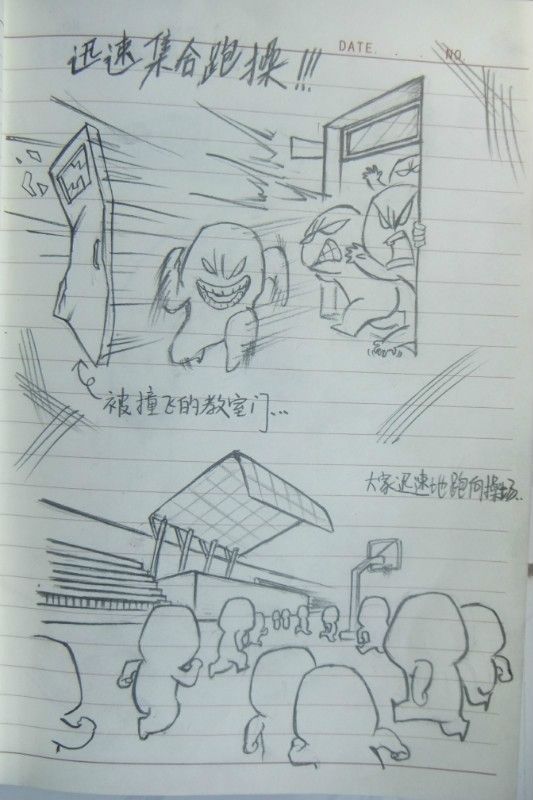 DATE. . . . NO.
迅速集合跑操!!!
被撞飞的教室门...
大家迅速地跑向操场.